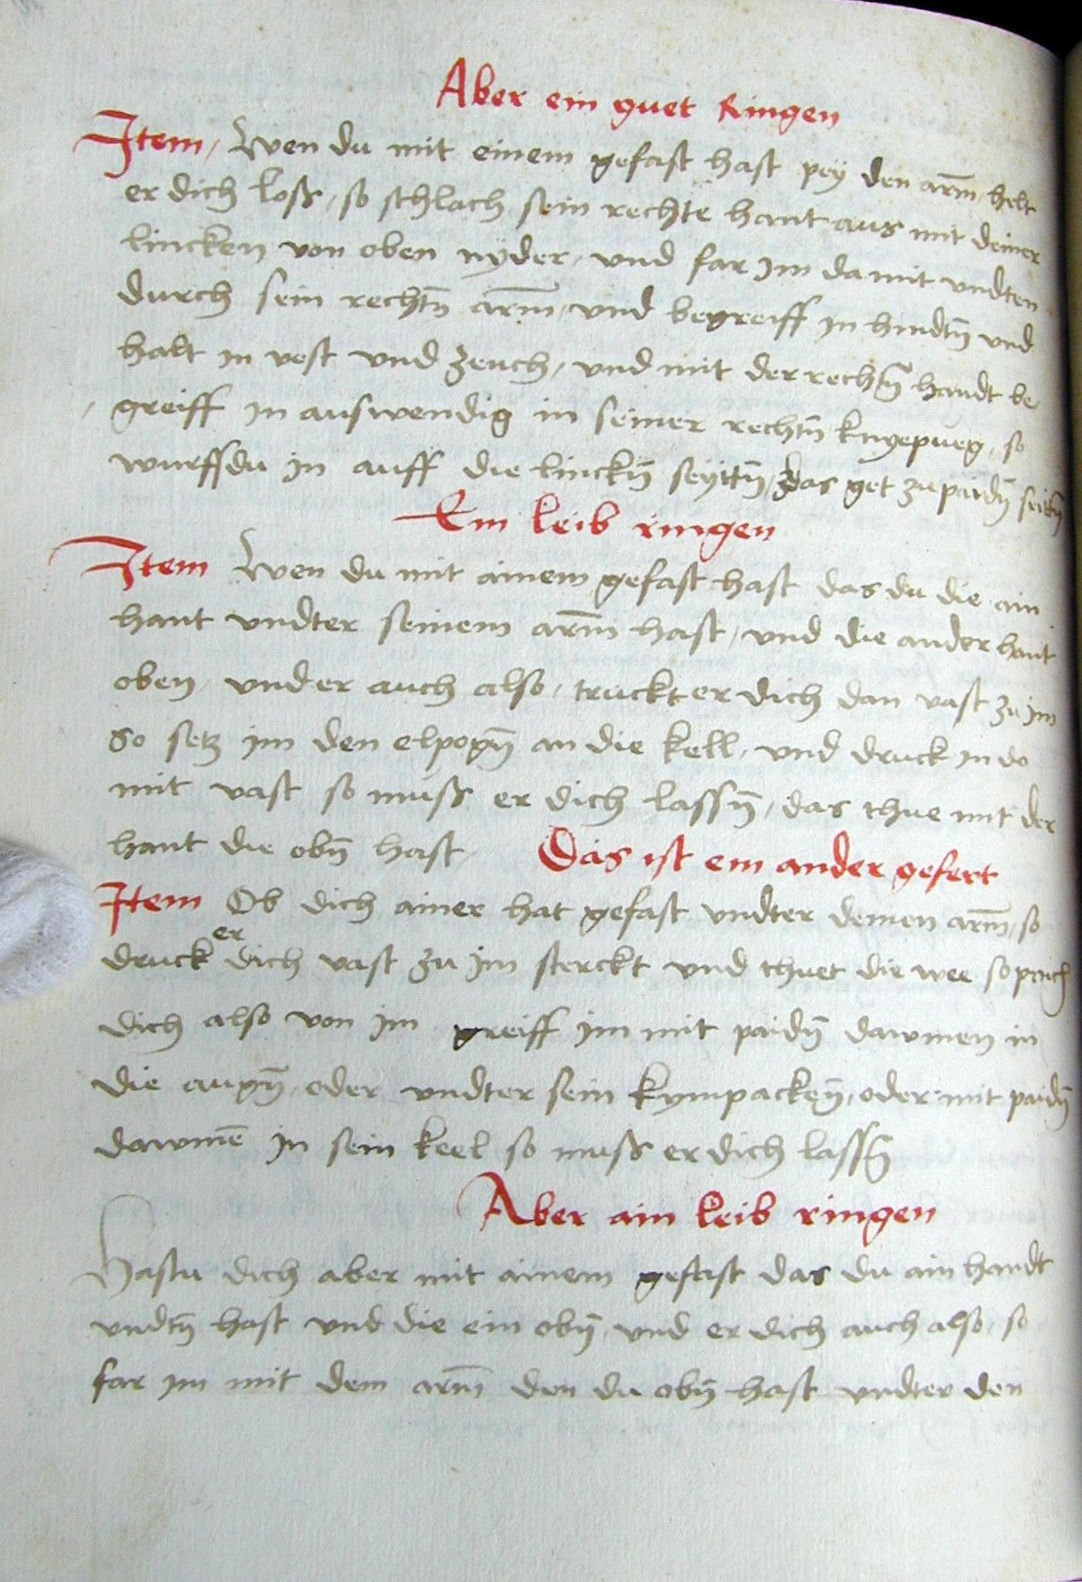 Aber ein guet Ringen
Item, Wen du mit einem gefast hast pey den arm̄, helt
er dich loss, so schlach sein rechte hant aus mit deiner
lincken von oben nyder, vnd far Im da mit vndten
durch sein rechtn̄ arm̄, vnd begreiff in hindtn̄ vnd
halt in vest vnd zeuch, vnd mit der rechtn̄ handt be
greiff In auswendig in seiner rechtn̄ knyepueg, so
wurffdu in auff die linckn̄ seyttn̄, das get zu paidn̄ seittn̄
Ein leib ringen
Item Wen du mit ainem gefast hast das du die ain
hant vndter seinem arm̄ hast, vnd die ander hant
oben, vnd er auch also, truckt er dich dan vast zu im
So setz im den elpogn̄ an die kell, vnd druck in do
mit vast so muss er dich lassn̄, das thue mit der
hant die obn̄ hast, Das ist ein ander gefert
Item Ob dich ainer hat gefast vndter deinen arm̄, so
druck er dich vast zu im sterckt vnd thuet die wee so paich
dich also von im greiff im mit paidn̄ dawmen in
die augn̄, oder vndter sein kympacken̄, oder mit paidn̄
dawmē in sein keel so muss er dich lassn̄
Aber ain leib ringen
Hastu dich aber mit ainem gefast das du ain handt
vndtn̄ hast vnd die ein obn̄, vnd er dich auch also, so
far im mit dem arm̄ den du obn̄ hast vndter den